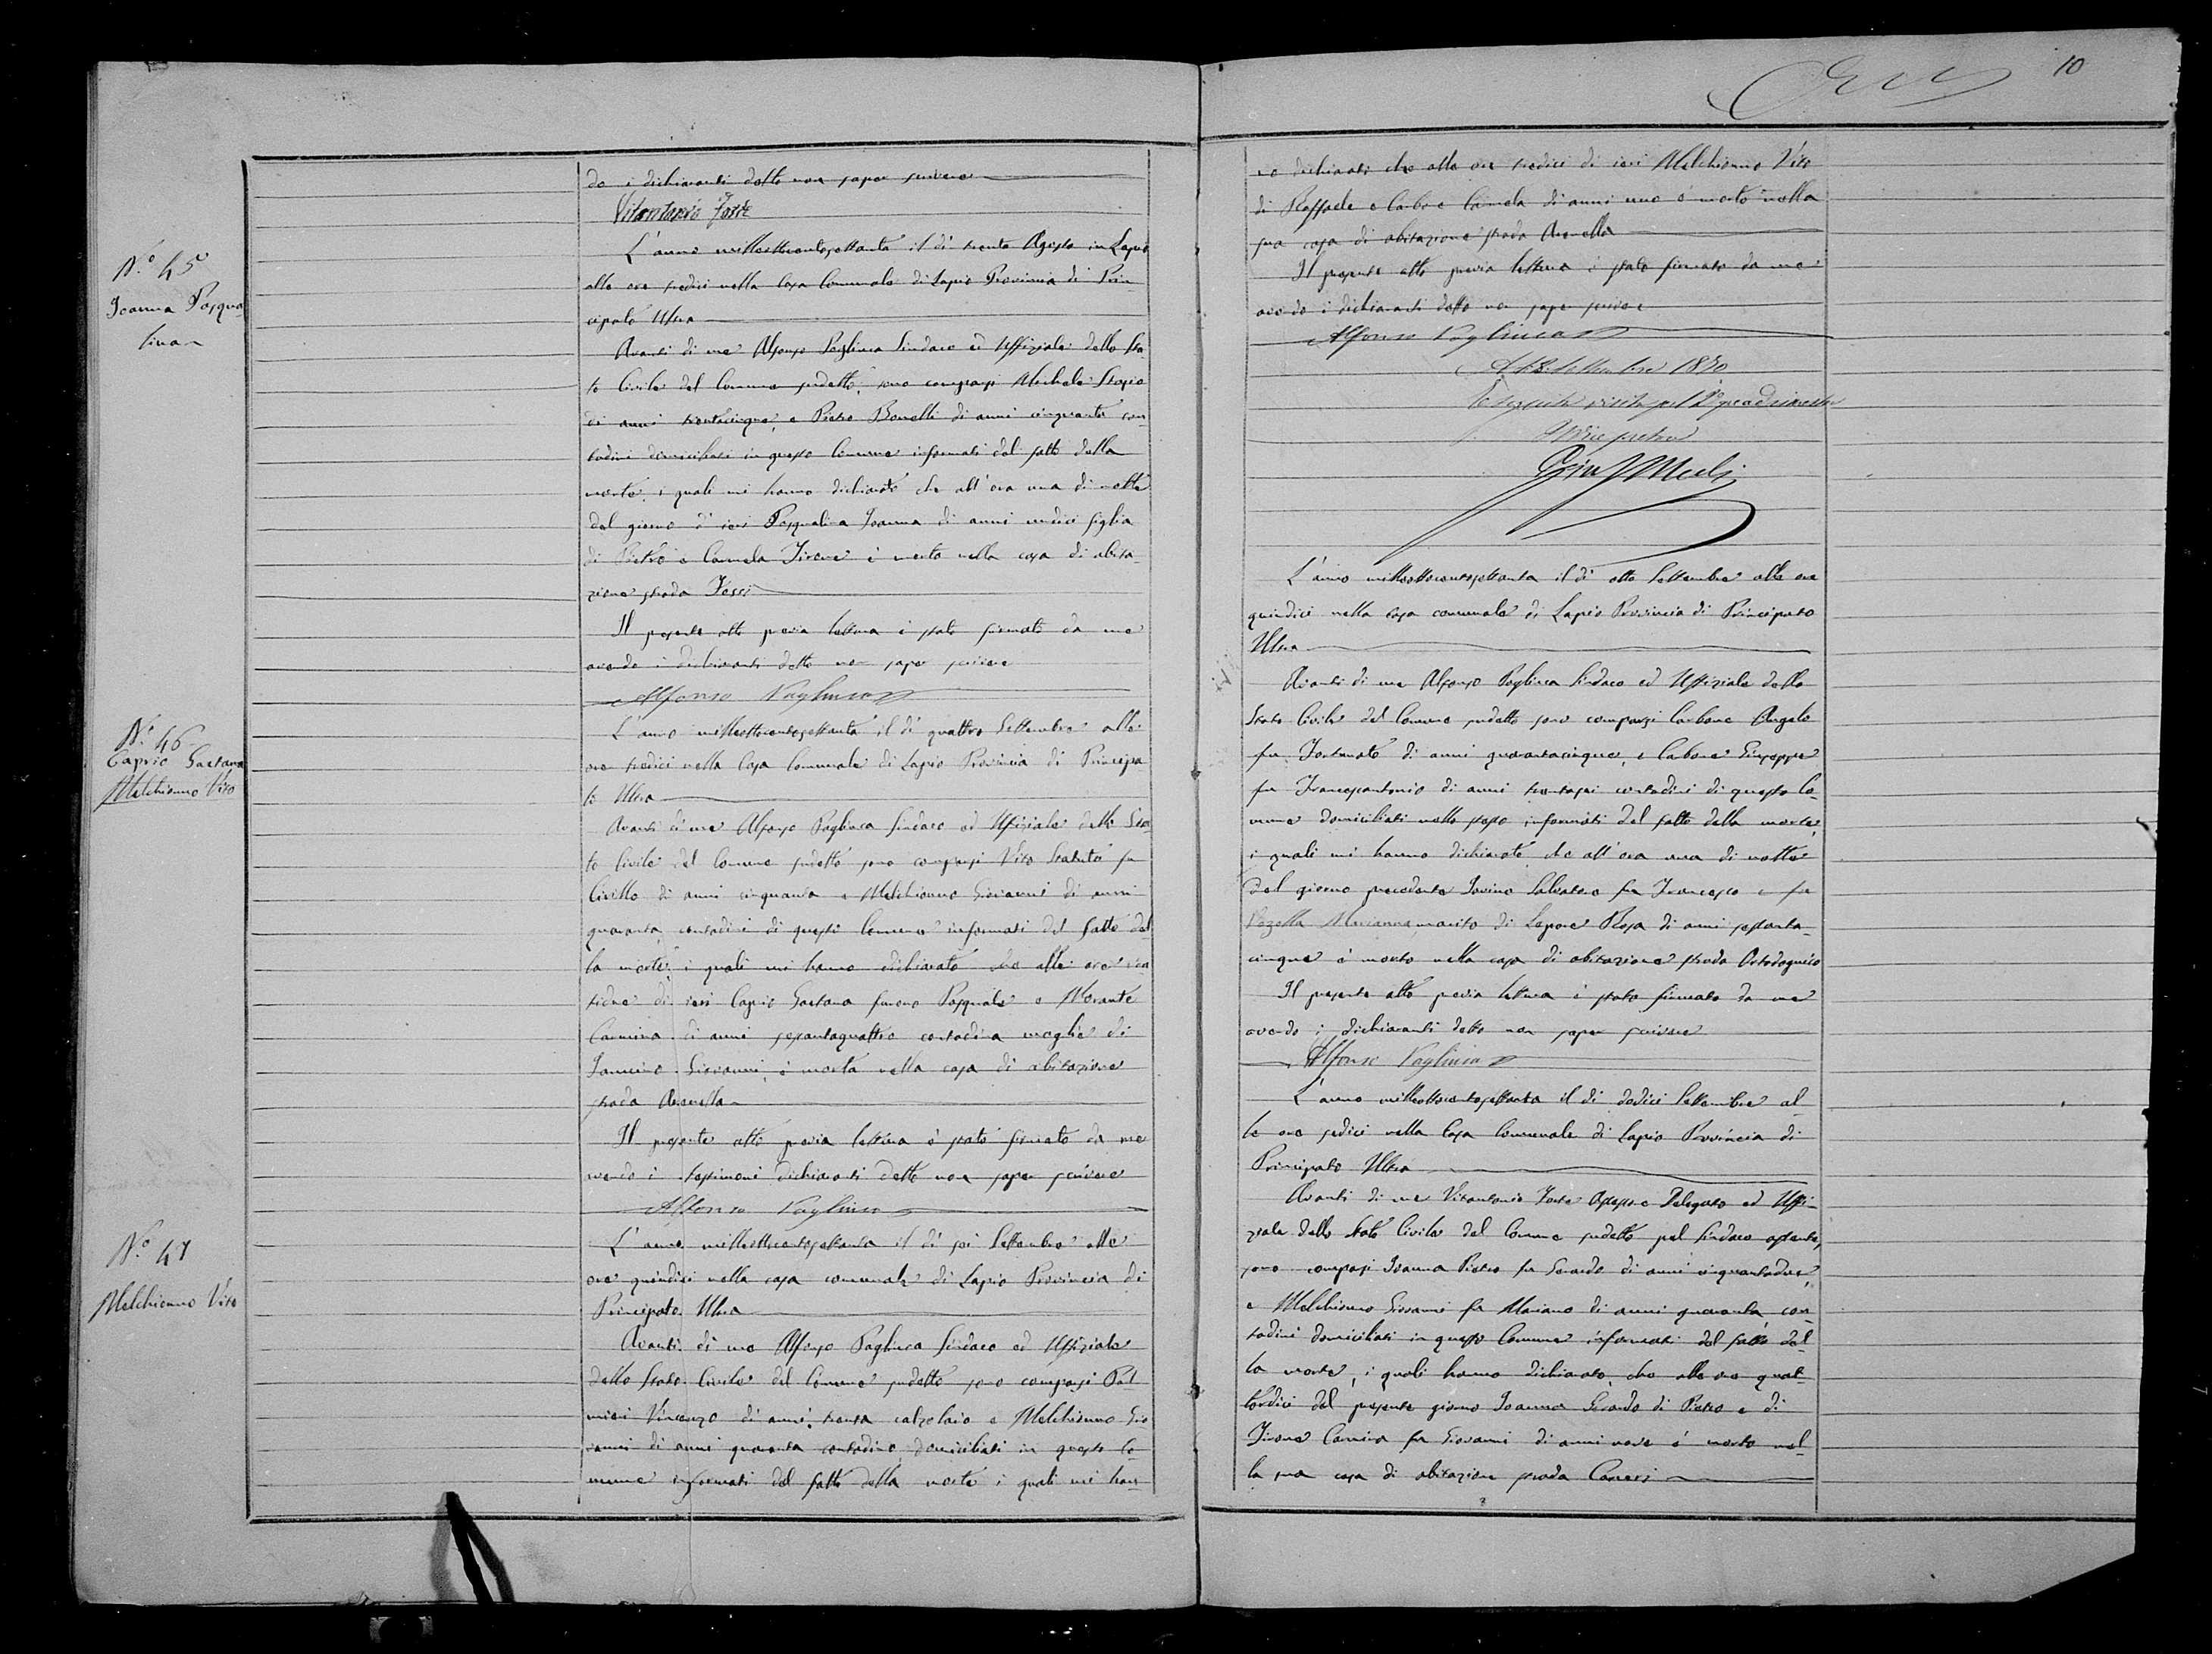 N.º 45
Ioanna Pasqua
lina
N.º 46
Caprio Gaetana
Melchionno Vito
N.º 47
Melchionno Vito
do i dichiaranti detto non saper scrivere
Vitantonio Forte
L'anno milleottocentosettanta il dì trenta Agosto in Lapio
alle ore tredici nella Casa Comunale di Lapio Provincia di Prin-
cipato Ultra
Avanti di me Alfonso Pagliuca Sindaco ed Uffiziale dello Sta-
to Civile del Comune sudetto, sono comparsi Michele
di anni trentacinque, e Pietro Bonelli di anni cinquanta con-
tadini domiciliati in questo Comune informati del fatto della
morte, i quali mi hanno dichiarato che all'ora una di notte
del giorno d'ieri Pasqualina Ioanna di anni undici figlia
di Pietro e Carmela Firone è morta nella casa di abita-
zione strada Fossi
Il presente atto previa lettura è stato firmato da me
avendo i dichiaranti detto non saper scrivere
Alfonso Pagliuca
L'anno milleottocentosettanta il dì quattro Settembre alle
ore tredici nella Casa Comunale di Lapio Provincia di Principa
to Ultra
Avanti di me Alfonso Pagliuca Sindaco ed Uffiziale dello Sta-
to Civile del Comune sudetto sono comparsi Vito Scaluto fu
Cirillo di anni cinquanta e Melchionno Giovanni di anni
quaranta, contadini di questo Comune informati del fatto del
la morte, i quali mi hanno dichiarato che alle ore ven
tidue di ieri Caprio Gaetana furono Pasquale e Morante
Carmina di anni sessantaquattro contadina moglie di
Iannino Giovanni, è morta nella casa di abitazione
strada Arenella
Il presente atto previa lettura è stato firmato da me
avendo i testimoni dichiaranti detto non saper scrivere
Alfonso Pagliuca
L'anno milleottocentosettanta il dì sei Settembre alle
ore quindici nella casa comunale di Lapio Provincia di
Principato Ultra
Avanti di me Alfonso Pagliuca Sindaco ed Uffiziale
dello Stato Civile del Comune sudetto sono comparsi Pal
mieri Vincenzo di anni trenta calzolaio e Melchionno Gio
vanni di anni quaranta contadino domiciliati in questo Co-
mune informati del fatto della morte i quali mi han-
10
no dichiarati che alle ore tredici di ieri Melchionno Vito
di Raffaele e Carbone Carmela di anni uno è morto nella
sua casa di abitazione strada Arenella
Il presente atto previa lettura è stato firmato da me
avendo i dichiaranti detto non saper scrivere
Alfonso Pagliuca
A 8 Settembre 1870
Eseguita visita pel 2º quadrimestre
Il Vice pretore
L'anno milleottocentosettanta il dì otto Settembre alle ore
quindici nella casa comunale di Lapio Provincia di Principato
Ultra
Avanti di me Alfonso Pagliuca Sindaco ed Uffiziale dello
Stato Civile del Comune sudetto sono comparsi Carbone Angelo
fu Fortunato di anni quarantacinque, e Carbone Giuseppe
fu Francesantonio di anni trentasei contadini di questo Co-
mune domiciliati nello stesso informati del fatto della morte,
i quali mi hanno dichiarato che all'ora una di notte
del giorno precedente Iovino Salvatore fu Francesco e fu
Marianna marito di Lepore Rosa di anni settanta-
cinque è morto nella casa di abitazione strada
Il presente atto previa lettura è stato firmato da me
avendo i dichiaranti detto non saper scrivere
Alfonso Pagliuca
L'anno milleottocentosettanta il dì dodici Settembre al-
le ore sedici nella Casa Comunale di Lapio Provincia di
Principato Ultra
Avanti di me Vitantonio Forte Assessore Delegato ed Uffi-
ziale dello Stato Civile del Comune sudetto pel Sindaco assente,
sono comparsi Ioanna Pietro fu Gerardo di anni cinquantadue,
e Melchionno Giovanni fu Mariano di anni quaranta con-
tadini domiciliati in questo Comune informati del fatto del-
la morte, i quali hanno dichiarato, che alle ore quat-
tordici del presente giorno Ioanna Gerardo di Pietro e di
Firone Carmina fu Giovanni di anni nove è morto nel-
la sua casa di abitazione strada